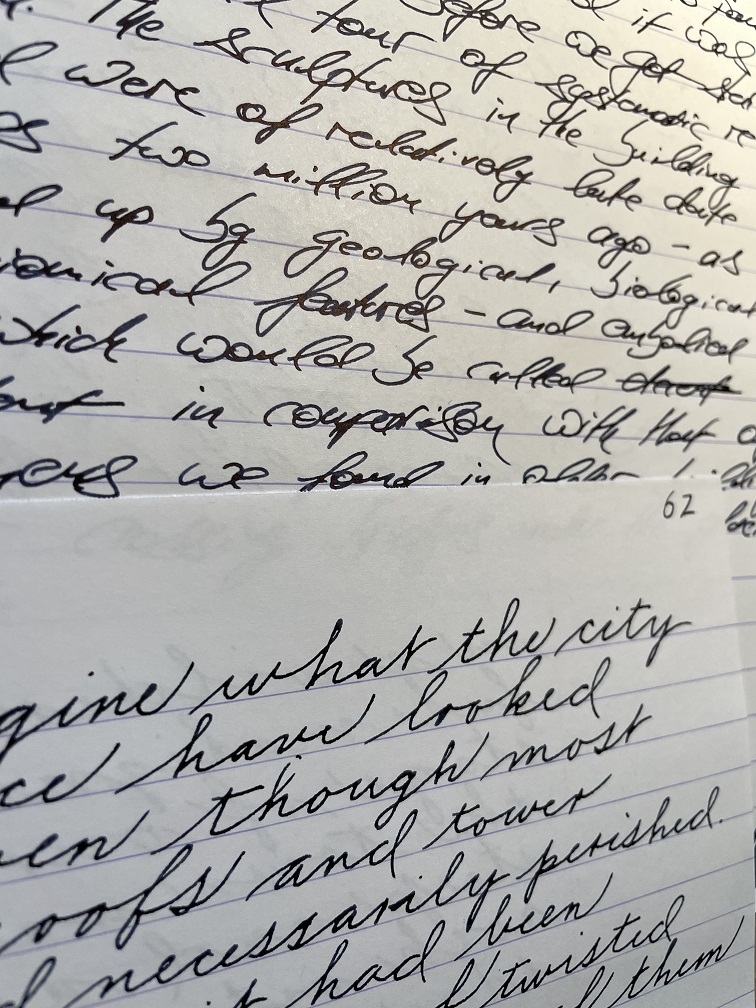 before we get
The tour of systematic
sculptures in the building
were of relatively late date
two million years ago - as
up by geological, biological
features - and embodied
which would be called
in comparison with that
we found in older
62
gine what the city
ce have looked
en though most
roofs and tower
necessarily perished.
it had been
twisted
them